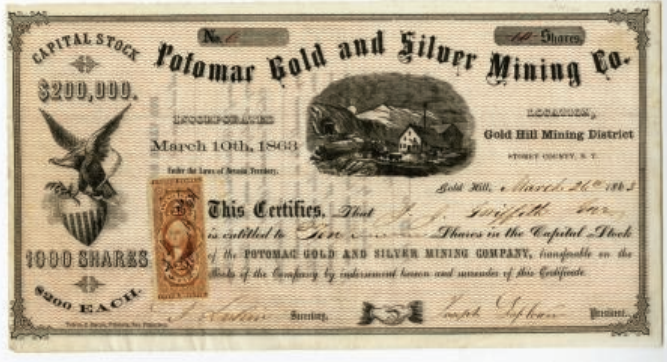 CAPITAL STOCK
$200,000.
1000 SHARES
$200 EACH.
No. 6
10 Shares
Potomac Gold and Silver Mining Co.
INCORPORATED
March 10th, 1863
Under the Laws of Nevada Territory.
LOCATION,
Gold Hill Mining District
STOREY COUNTY, N. T.
Gold Hill, March 26th 1863
This Certifies, That J. J. Griffith
is entitled to Ten Shares in the Capital Stock
of the POTOMAC GOLD AND SILVER MINING COMPANY, transferable on the
Books of the Company by indorsement hereon and surrender of this Certificate.
Secretary.
Joseph
President.